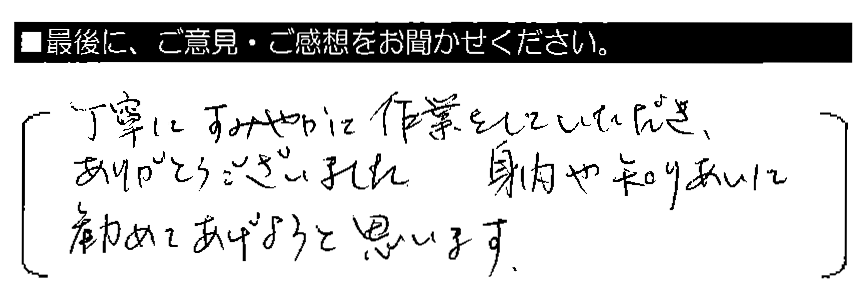 ■最後に、ご意見・ご感想をお聞かせください。
丁寧にすみやかに作業をしていただき、
ありがとうございました 身内や知りあいに
勧めてあげようと思います.